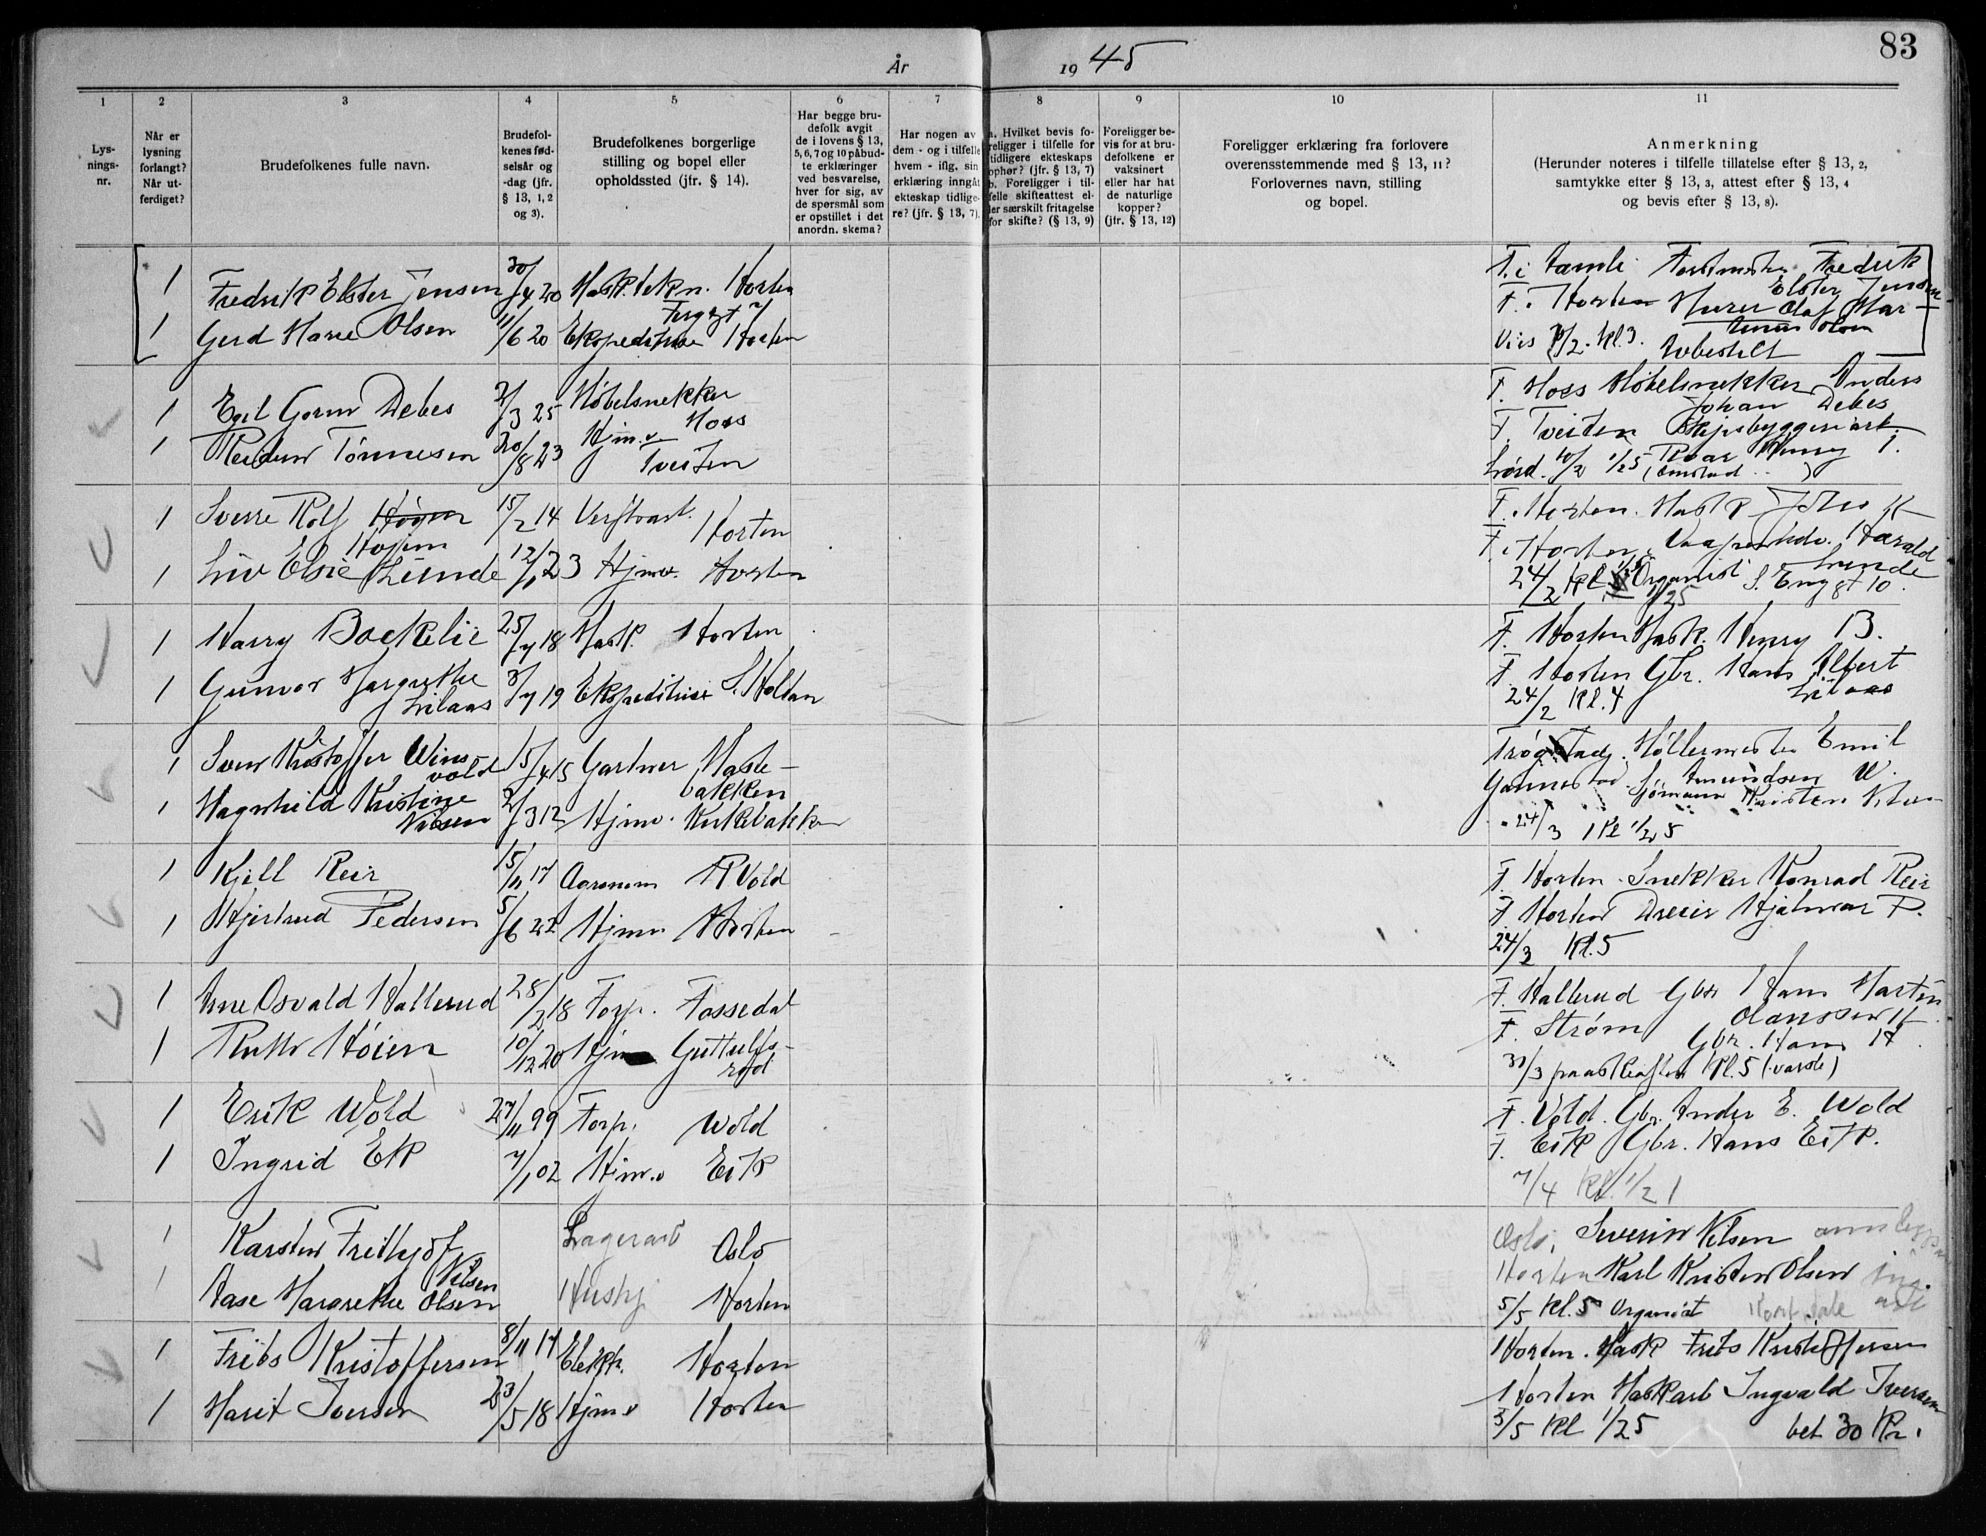 83
År 1945
1 2 3 4 5 6 7 8 9 10 11
Lys-
nings-
nr.
Når er
lysning
forlangt?
Når ut-
ferdiget?
Brudefolkenes fulle navn.
Brudefol-
kenes fød-
selsår og
-dag (jfr.
§ 13, 1, 2
og 3).
Brudefolkenes borgerlige
stilling og bopel eller
opholdssted (jfr. § 14).
Har begge bru-
defolk avgit
de i lovens § 13,
5, 6, 7 og 10 påbud-
te erklæringer
ved besvarelse,
hver for sig, av
de spørsmål som
er opstillet i det
anordn. skema?
Har nogen av
dem - og i tilfelle
hvem - iflg. sin
erklæring inngåt
ekteskap tidlige-
re? (jfr. § 13, 7).
a. Hvilket bevis fo-
religger i tilfelle for
tidligere ekteskaps
ophør? (jfr. § 13, 7)
b. Foreligger i til-
felle skifteattest el-
ler særskilt fritagelse
for skifte? (§ 13, 9)
Foreligger be-
vis for at bru-
defolkene er
vaksinert
eller har hat
de naturlige
kopper?
(jfr. § 13, 12)
Foreligger erklæring fra forlovere
overensstemmende med § 13, 11?
Forlovernes navn, stilling
og bopel.
Anmerkning
(Herunder noteres i tilfelle tillatelse efter § 13, 2,
samtykke efter § 13, 3, attest efter § 13, 4
og bevis efter § 13, 8).
1 Fredrik Elster Jensen 30/4 20 Mask.tekn. Horten F. i Fredrik
Elster Jensen
1 Gerd Marie Olsen 11/6 20 Ekspeditrise Horten F. Horten Murer Olaf Mar-
Olsen
Kl 3. Avbestilt
1 Egil Gorm Debes 2/3 25 Møbelsnekker Moss F. Moss Møbelsnekker Anders
Johan Debes
1 Reidun Tønnesen 20/8 23 Hjmv. Tveiten F. Tveiten Skipsbyggeriarb.
Roar Henry T.
Lørd. 10/2 1/2 5
1 Sverre Rolf Høgm
Højem 15/2 14 Verftsarb. Horten F. Horten. Mask H
1 Liv Elsie Lunde 12/1 23 Hjmv. Horten F. Horten Harald
Lunde
24/2 Kl Organist 1/2 5
1 Harry Bockelie 25/7 18 Mask. Horten F. Horten Mask. Henry B.
1 Gunvor Margrethe
Lilaas 3/7 19 Ekspeditrise S. Holtan F. Horten Gbr. Hans Albert
Lilaas
24/2 Kl. 4
1 Svein Kristoffer Wins-
vold 15/4 15 Gartner Maste-
bakken Trøgstad. Møllermester Emil
Amundsen W.
1 Magnhild Kristine
Nilsen 2/3 12 Hjmv. Kirkebakken Sjømann Kristen Nilsen
24/3 Kl 1/2 5
1 Kjell Reir 15/11 17 Agronom R Vold F. Horten. Snekker Konrad Reir
1 Hjertrud Pedersen 5/6 22 Hjmv. Horten F Horten Dreier Hjalmar P.
24/3 Kl. 5
1 Arne Osvald Hallerud 28/2 18 Forp. Fossedal F. Hallerud Gbr Hans Martin
Olanssen H
1 Ruth Høien 10/12 20 Hjm Guttulfs-
rød F. Strøm Gbr. Hans H.
31/3 paaskeaften Kl. 5
1 Erik Wold 27/11 99 Forp. Wold F. Vold. Gbr. Ander E. Wold
1 Ingrid Eik 7/1 02 Hjmv. Eik F. Eik Gbr. Hans Eik.
7/4 Kl. 1/2 1
1 Karsten Frithjof
Nilsen Lagerarb Oslo Oslo, Severin Nilsen
1 Aase Margrethe Olsen Hushj Horten Horten Karl Kristen Olsen
5/5 Kl. 5 Organist
1 Frits Kristoffersen 8/11 17 Elektr. Horten Horten. Mask Frits Kristoffersen
1 Marit Iversen 23/5 18 Hjmv Horten Horten Maskarb Ingvald Iversen
5/5 Kl 1/2 5 bet 30 Kr.